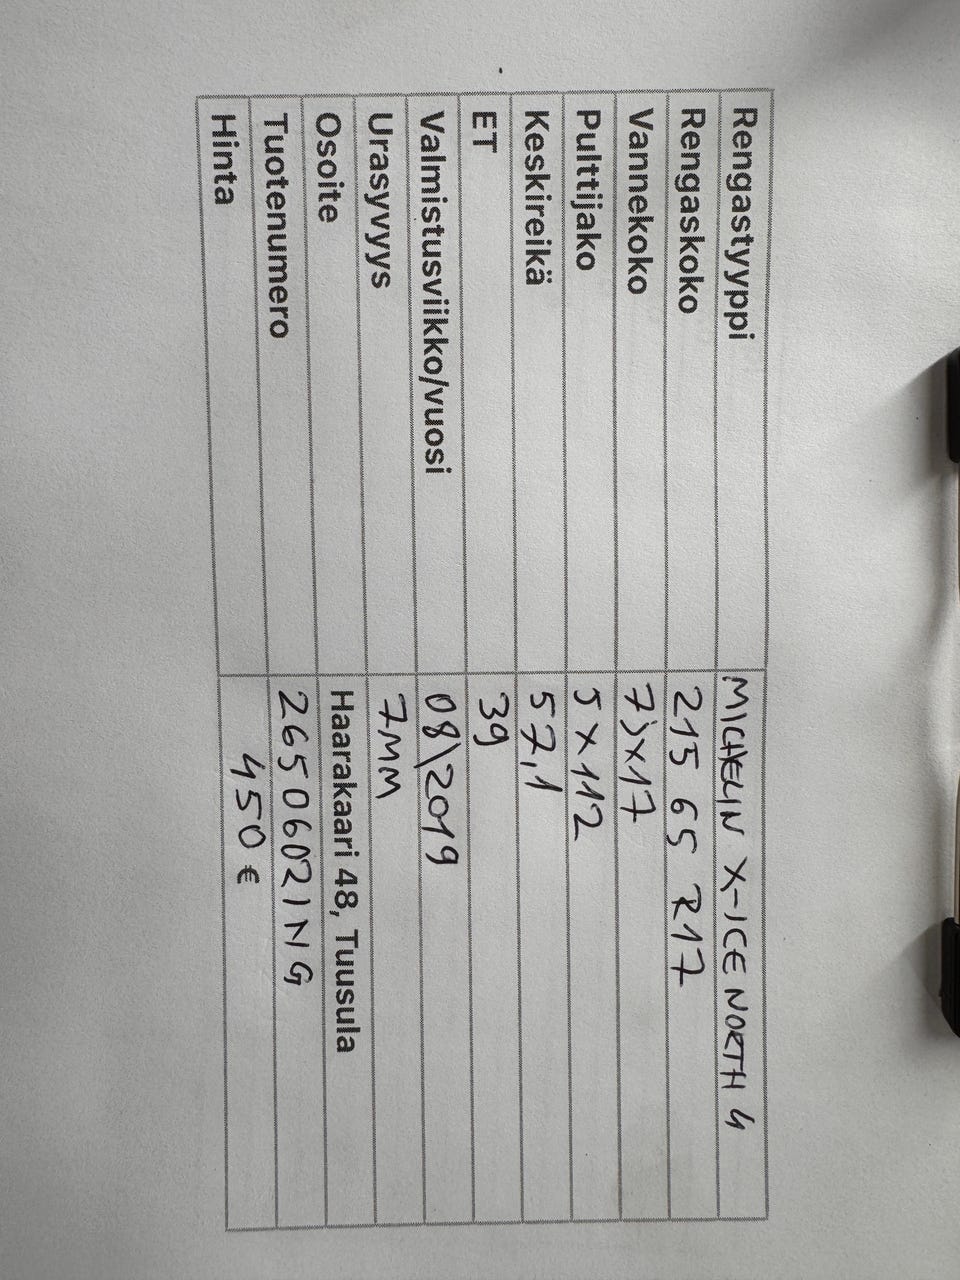 Rengastyyppi MICHELIN X-ICE NORTH 4
Rengaskoko 215 65 R17
Vannekoko 7Jx17
Pulttijako 5x112
Keskireikä 57,1
ET 39
Valmistusviikko/vuosi 08\2019
Urasyvyys 7MM
Osoite Haarakaari 48, Tuusula
Tuotenumero 26506021NG
Hinta 450 €